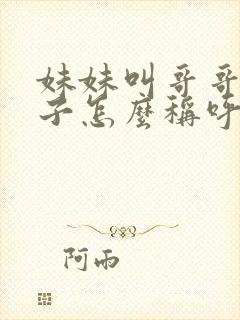 妹妹叫哥哥
子怎麼稱呼
阿雨